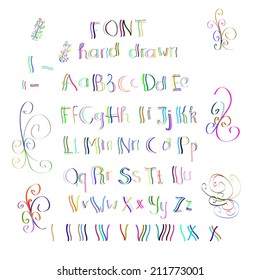 FONT
hand drawn
Aa Bb Cc Dd Ee
Ff Gg Hh Ii Jj Kk
Ll Mm Nn Oo Pp
Qq Rr Ss Tt Uu
Vv Ww Xx Yy Zz
I II III IV V VI VII VIII IX X
shutterstock.com · 211773001